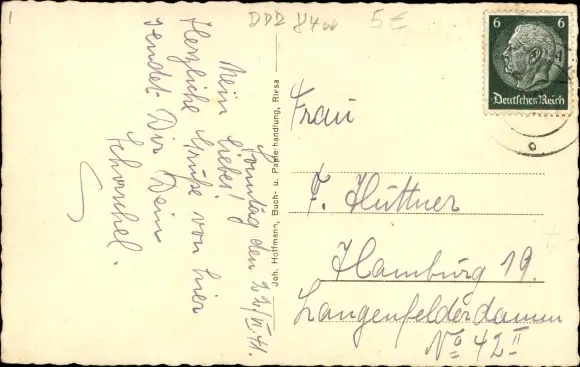 1
DDR 8400
5 €
6 6
Deutsches Reich
Sonntag den 22/VI. 41.
Mein lieber!
Herzliche Grüße von hier
sendet Dir Dein
Schorschel.
Joh. Hoffmann, Buch- u. Papierhandlung, Riesa
Frau
F. Hüttner
Hamburg 19.
Langenfelderdamm
No 42 II